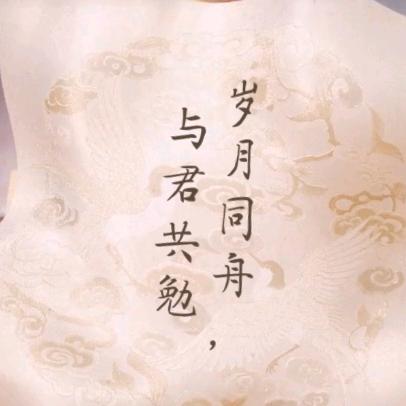 岁月同舟，
与君共勉